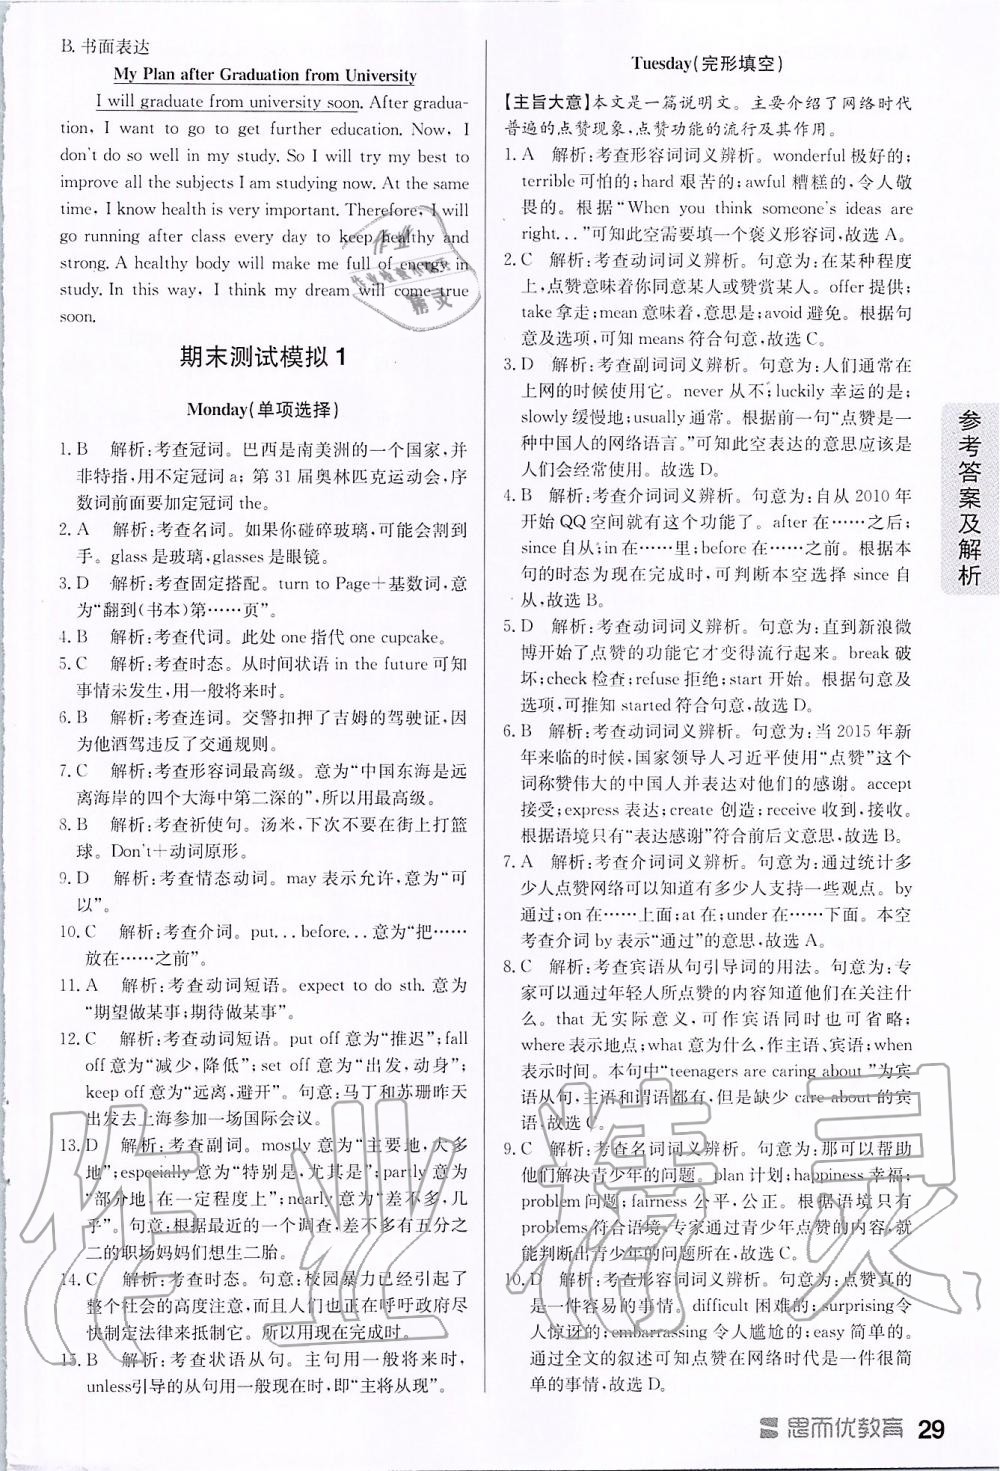 B. 书面表达
My Plan after Graduation from University
I will graduate from university soon. After gradua-
tion, I want to go to get further education. Now, I
don't do so well in my study. So I will try my best to
improve all the subjects I am studying now. At the same
time, I know health is very important. Therefore, I will
go running after class every day to keep healthy and
strong. A healthy body will make me full of energy in
study. In this way, I think my dream will come true
soon.
期末测试模拟 1
Monday(单项选择)
1. B 解析:考查冠词。巴西是南美洲的一个国家,并
非特指,用不定冠词 a; 第 31 届奥林匹克运动会,序
数词前面要加定冠词 the。
2. A 解析:考查名词。如果你碰碎玻璃,可能会割到
手。glass 是玻璃,glasses 是眼镜。
3. D 解析:考查固定搭配。turn to Page+基数词,意
为“翻到(书本)第……页”。
4. B 解析:考查代词。此处 one 指代 one cupcake。
5. C 解析:考查时态。从时间状语 in the future 可知
事情未发生,用一般将来时。
6. B 解析:考查连词。交警扣押了吉姆的驾驶证,因
为他酒驾违反了交通规则。
7. C 解析:考查形容词最高级。意为“中国东海是远
离海岸的四个大海中第二深的”,所以用最高级。
8. B 解析:考查祈使句。汤米,下次不要在街上打篮
球。Don't+动词原形。
9. D 解析:考查情态动词。may 表示允许,意为“可
以”。
10. C 解析:考查介词。put... before... 意为“把……
放在……之前”。
11. A 解析:考查动词短语。expect to do sth. 意为
“期望做某事;期待做某事”。
12. C 解析:考查动词短语。put off 意为“推迟”;fall
off 意为“减少,降低”; set off 意为“出发,动身”;
keep off 意为“远离,避开”。句意:马丁和苏珊昨天
出发去上海参加一场国际会议。
13. D 解析:考查副词。mostly 意为“主要地,大多
地”;especially 意为“特别是,尤其是”;partly 意为
“部分地,在一定程度上”;nearly 意为“差不多,几
乎”。句意:根据最近的一个调查,差不多有五分之
二的职场妈妈们想生二胎。
14. C 解析:考查时态。句意:校园暴力已经引起了
整个社会的高度注意,而且人们也正在呼吁政府尽
快制定法律来抵制它。所以用现在完成时。
15. B 解析:考查状语从句。主句用一般将来时,
unless引导的从句用一般现在时,即“主将从现”。
Tuesday(完形填空)
【主旨大意】本文是一篇说明文。主要介绍了网络时代
普遍的点赞现象,点赞功能的流行及其作用。
1. A 解析:考查形容词词义辨析。wonderful 极好的;
terrible 可怕的;hard 艰苦的;awful 糟糕的,令人敬
畏的。根据“When you think someone's ideas are
right...”可知此空需要填一个褒义形容词,故选 A。
2. C 解析:考查动词词义辨析。句意为:在某种程度
上,点赞意味着你同意某人或赞赏某人。offer 提供;
take 拿走;mean 意味着,意思是;avoid 避免。根据句
意及选项,可知 means 符合句意,故选 C。
3. D 解析:考查副词词义辨析。句意为:人们通常在
上网的时候使用它。never 从不;luckily 幸运的是;
slowly 缓慢地;usually 通常。根据前一句“点赞是一
种中国人的网络语言。”可知此空表达的意思应该是
人们会经常使用。故选 D。
4. B 解析:考查介词词义辨析。句意为:自从 2010 年
开始 QQ 空间就有这个功能了。after 在……之后;
since 自从;in 在……里;before 在……之前。根据本
句的时态为现在完成时,可判断本空选择 since 自
从,故选 B。
5. D 解析:考查动词词义辨析。句意为:直到新浪微
博开始了点赞的功能它才变得流行起来。break 破
坏;check 检查;refuse 拒绝;start 开始。根据句意及
选项,可推知 started 符合句意,故选 D。
6. B 解析:考查动词词义辨析。句意为:当 2015 年新
年来临的时候,国家领导人习近平使用“点赞”这个
词称赞伟大的中国人并表达对他们的感谢。accept
接受;express 表达;create 创造;receive 收到,接收。
根据语境只有“表达感谢”符合前后文意思,故选 B。
7. A 解析:考查介词词义辨析。句意为:通过统计多
少人点赞网络可以知道有多少人支持一些观点。by
通过;on 在……上面;at 在;under 在……下面。本空
考查介词 by 表示“通过”的意思,故选 A。
8. C 解析:考查宾语从句引导词的用法。句意为:专
家可以通过年轻人所点赞的内容知道他们在关注什
么。that 无实际意义,可作宾语同时也可省略;
where 表示地点;what 意为什么,作主语、宾语;when
表示时间。本句中“teenagers are caring about ”为宾
语从句,主语和谓语都有,但是缺少 care about 的宾
语,故选 C。
9. C 解析:考查名词词义辨析。句意为:那可以帮助
他们解决青少年的问题。plan 计划;happiness 幸福;
problem 问题;fairness 公平,公正。根据语境只有
problems 符合语境,专家通过青少年点赞的内容,就
能判断出青少年的问题所在,故选 C。
10. D 解析:考查形容词词义辨析。句意为:点赞真的
是一件容易的事情。difficult 困难的;surprising令
人惊讶的;embarrassing 令人尴尬的;easy 简单的。
通过全文的叙述可知点赞在网络时代是一件很简
单的事情,故选 D。
参考答案及解析
思而优教育 29
作业精灵